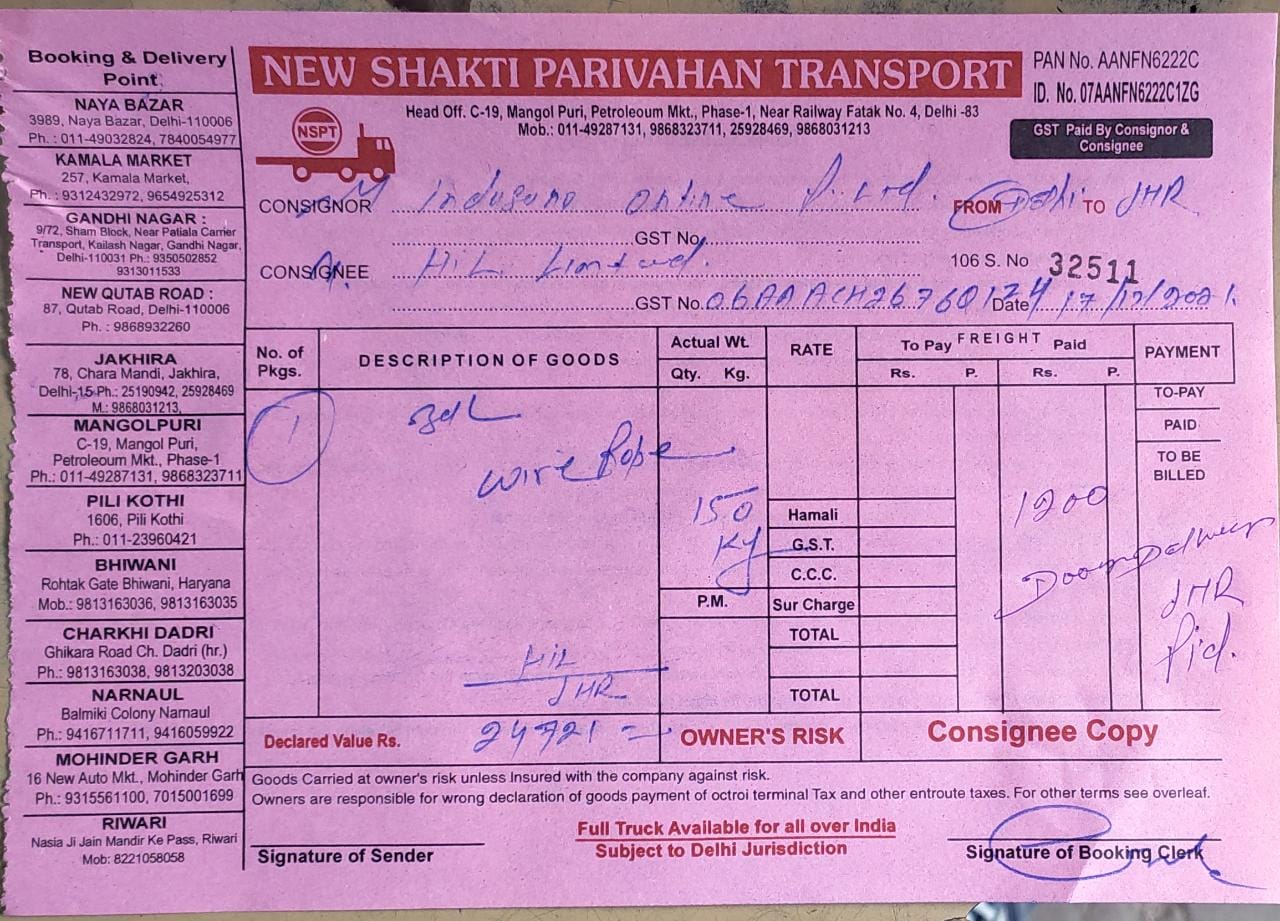 Booking & Delivery
Point
NAYA BAZAR
3989, Naya Bazar, Delhi-110006
Ph. : 011-49032824, 7840054977
KAMALA MARKET
257, Kamala Market,
Ph. : 9312432972, 9654925312
GANDHI NAGAR :
9/72, Sham Block, Near Patiala Carrier
Transport, Kailash Nagar, Gandhi Nagar,
Delhi-110031 Ph.: 9350502852
9313011533
NEW QUTAB ROAD :
87, Qutab Road, Delhi-110006
Ph. : 9868932260
JAKHIRA
78, Chara Mandi, Jakhira,
Delhi-15 Ph.: 25190942, 25928469
M.: 9868031213,
MANGOLPURI
C-19, Mangol Puri,
Petroleoum Mkt., Phase-1
Ph.: 011-49287131, 9868323711
PILI KOTHI
1606, Pili Kothi
Ph.: 011-23960421
BHIWANI
Rohtak Gate Bhiwani, Haryana
Mob.: 9813163036, 9813163035
CHARKHI DADRI
Ghikara Road Ch. Dadri (hr.)
Ph.: 9813163038, 9813203038
NARNAUL
Balmiki Colony Narnaul
Ph.: 9416711711, 9416059922
MOHINDER GARH
16 New Auto Mkt., Mohinder Garh
Ph.: 9315561100, 7015001699
RIWARI
Nasia Ji Jain Mandir Ke Pass, Riwari
Mob: 8221058058
NEW SHAKTI PARIVAHAN TRANSPORT
PAN No. AANFN6222C
ID. No. 07AANFN6222C1ZG
NSPT
Head Off. C-19, Mangol Puri, Petroleoum Mkt., Phase-1, Near Railway Fatak No. 4, Delhi -83
Mob.: 011-49287131, 9868323711, 25928469, 9868031213
GST Paid By Consignor &
Consignee
CONSIGNOR Online P. Ltd. FROM Delhi TO JHR
GST No.
CONSIGNEE HiL Limited. 106 S. No 32511
GST No. Date 17/12/2021.
No. of
Pkgs.
DESCRIPTION OF GOODS
Actual Wt.
Qty. Kg.
RATE
FREIGHT
To Pay Paid
Rs. P. Rs. P.
PAYMENT
TO-PAY
PAID
TO BE
BILLED
1
wire Rope
150
Kg
1200
Hamali
G.S.T.
C.C.C.
P.M.
Sur Charge
TOTAL
TOTAL
Door Delivery
JHR
HiL
JHR
Declared Value Rs. 24721 =
OWNER'S RISK
Consignee Copy
Goods Carried at owner's risk unless Insured with the company against risk.
Owners are responsible for wrong declaration of goods payment of octroi terminal Tax and other entroute taxes. For other terms see overleaf.
Full Truck Available for all over India
Subject to Delhi Jurisdiction
Signature of Sender
Signature of Booking Clerk